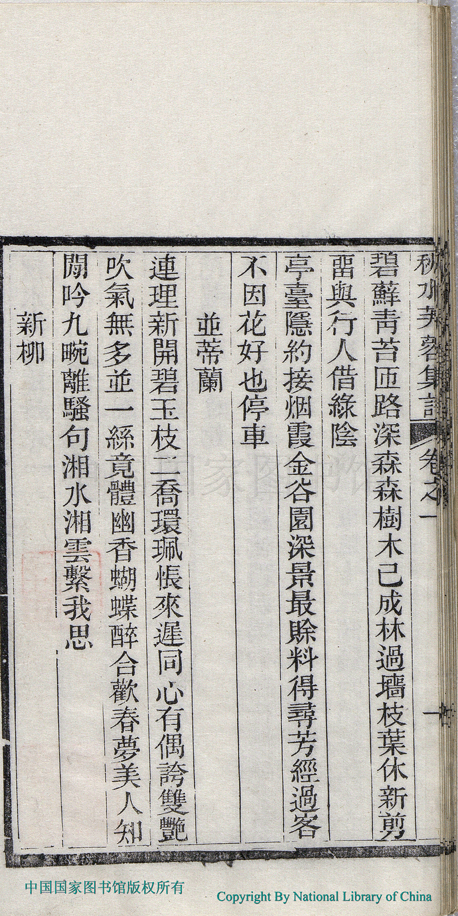 秋水芙蓉集詩 卷之一
碧蘚青苔匝路深森森樹木已成林過墻枝葉休新剪
畱與行人借綠陰
亭臺隱約接烟霞金谷園深景最賒料得尋芳經過客
不因花好也停車
並蒂蘭
連理新開碧玉枝二喬環珮悵來遲同心有偶誇雙艷
吹氣無多並一絲竟體幽香蝴蝶醉合歡春夢美人知
閒吟九畹離騷句湘水湘雲繫我思
新柳
中国国家图书馆版权所有
Copyright By National Library of China